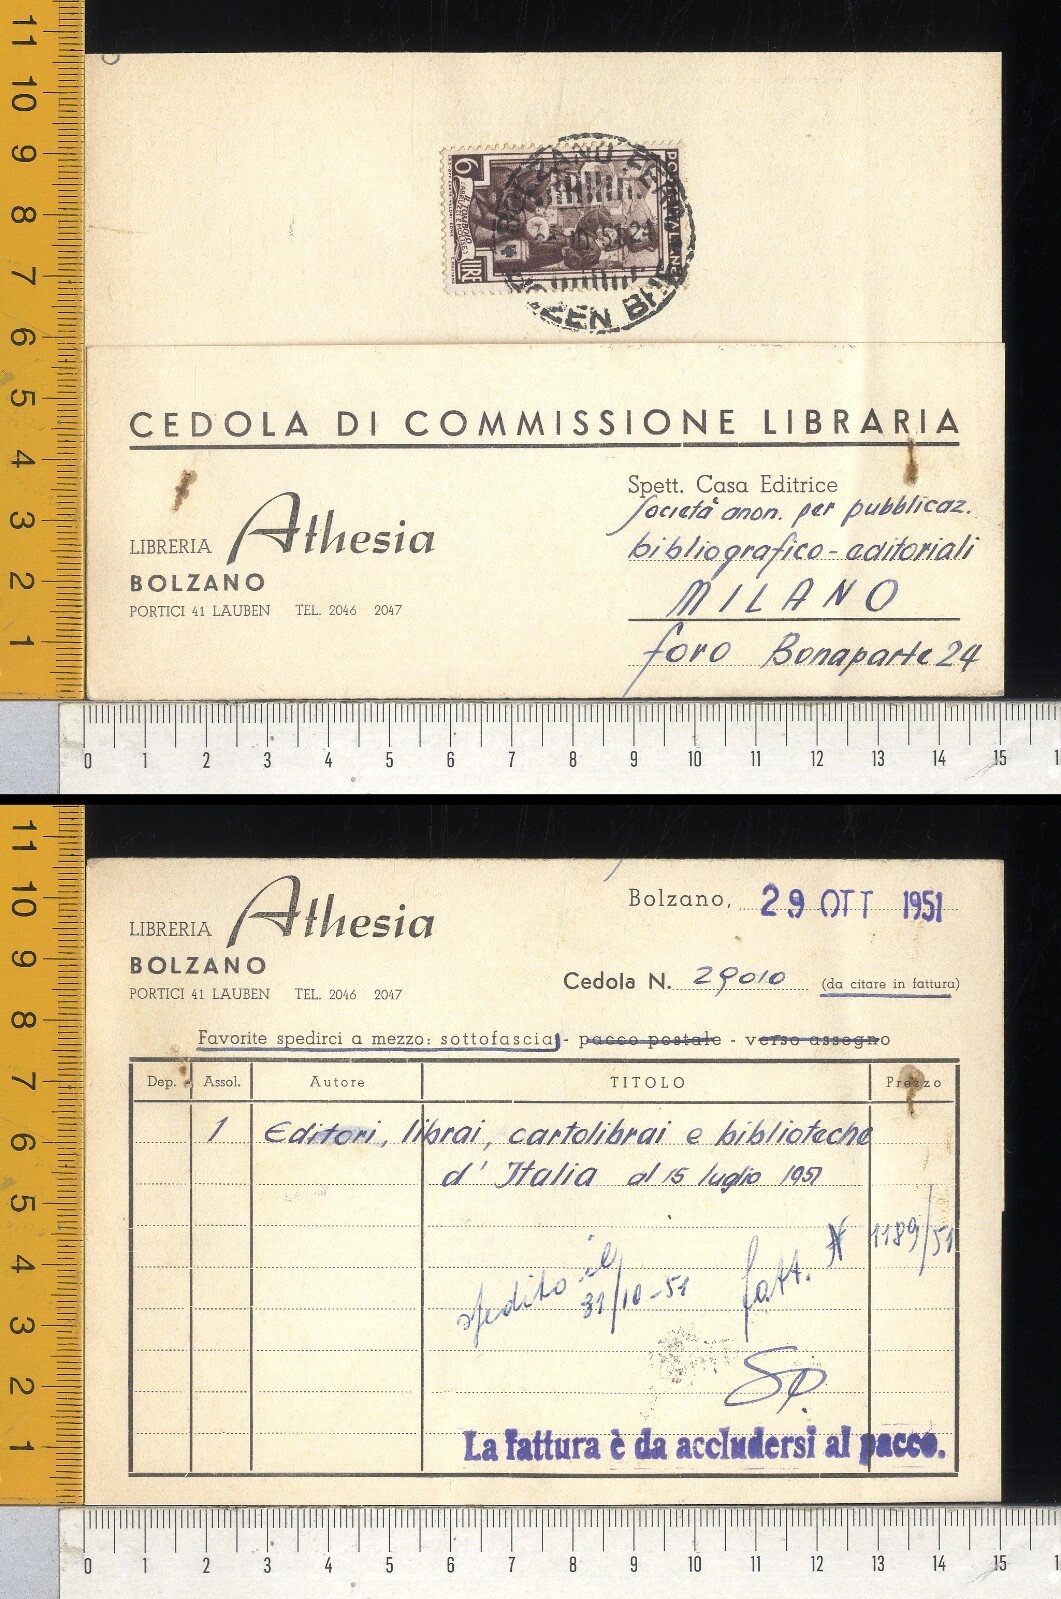 6
LIRE
IL TOMBOLO
BOLZANO
BOZEN
CEDOLA DI COMMISSIONE LIBRARIA
LIBRERIA Athesia
BOLZANO
PORTICI 41 LAUBEN TEL. 2046 2047
Spett. Casa Editrice
Società anon. per pubblicaz.
bibliografico-editoriali
MILANO
foro Bonaparte 24
11 10 9 8 7 6 5 4 3 2 1
0 1 2 3 4 5 6 7 8 9 10 11 12 13 14 15
LIBRERIA Athesia
BOLZANO
PORTICI 41 LAUBEN TEL. 2046 2047
Bolzano, 29 OTT 1951
Cedola N. 29010 (da citare in fattura)
Favorite spedirci a mezzo: sottofascia - pacco postale - verso assegno
Dep. Assol. Autore TITOLO Prezzo
1 Editori, librai, cartolibrai e biblioteche
d'Italia al 15 luglio 1951
spedito il 31/10-51
fatt. N 1189/51
La fattura è da accludersi al pacco.
11 10 9 8 7 6 5 4 3 2 1
0 1 2 3 4 5 6 7 8 9 10 11 12 13 14 15